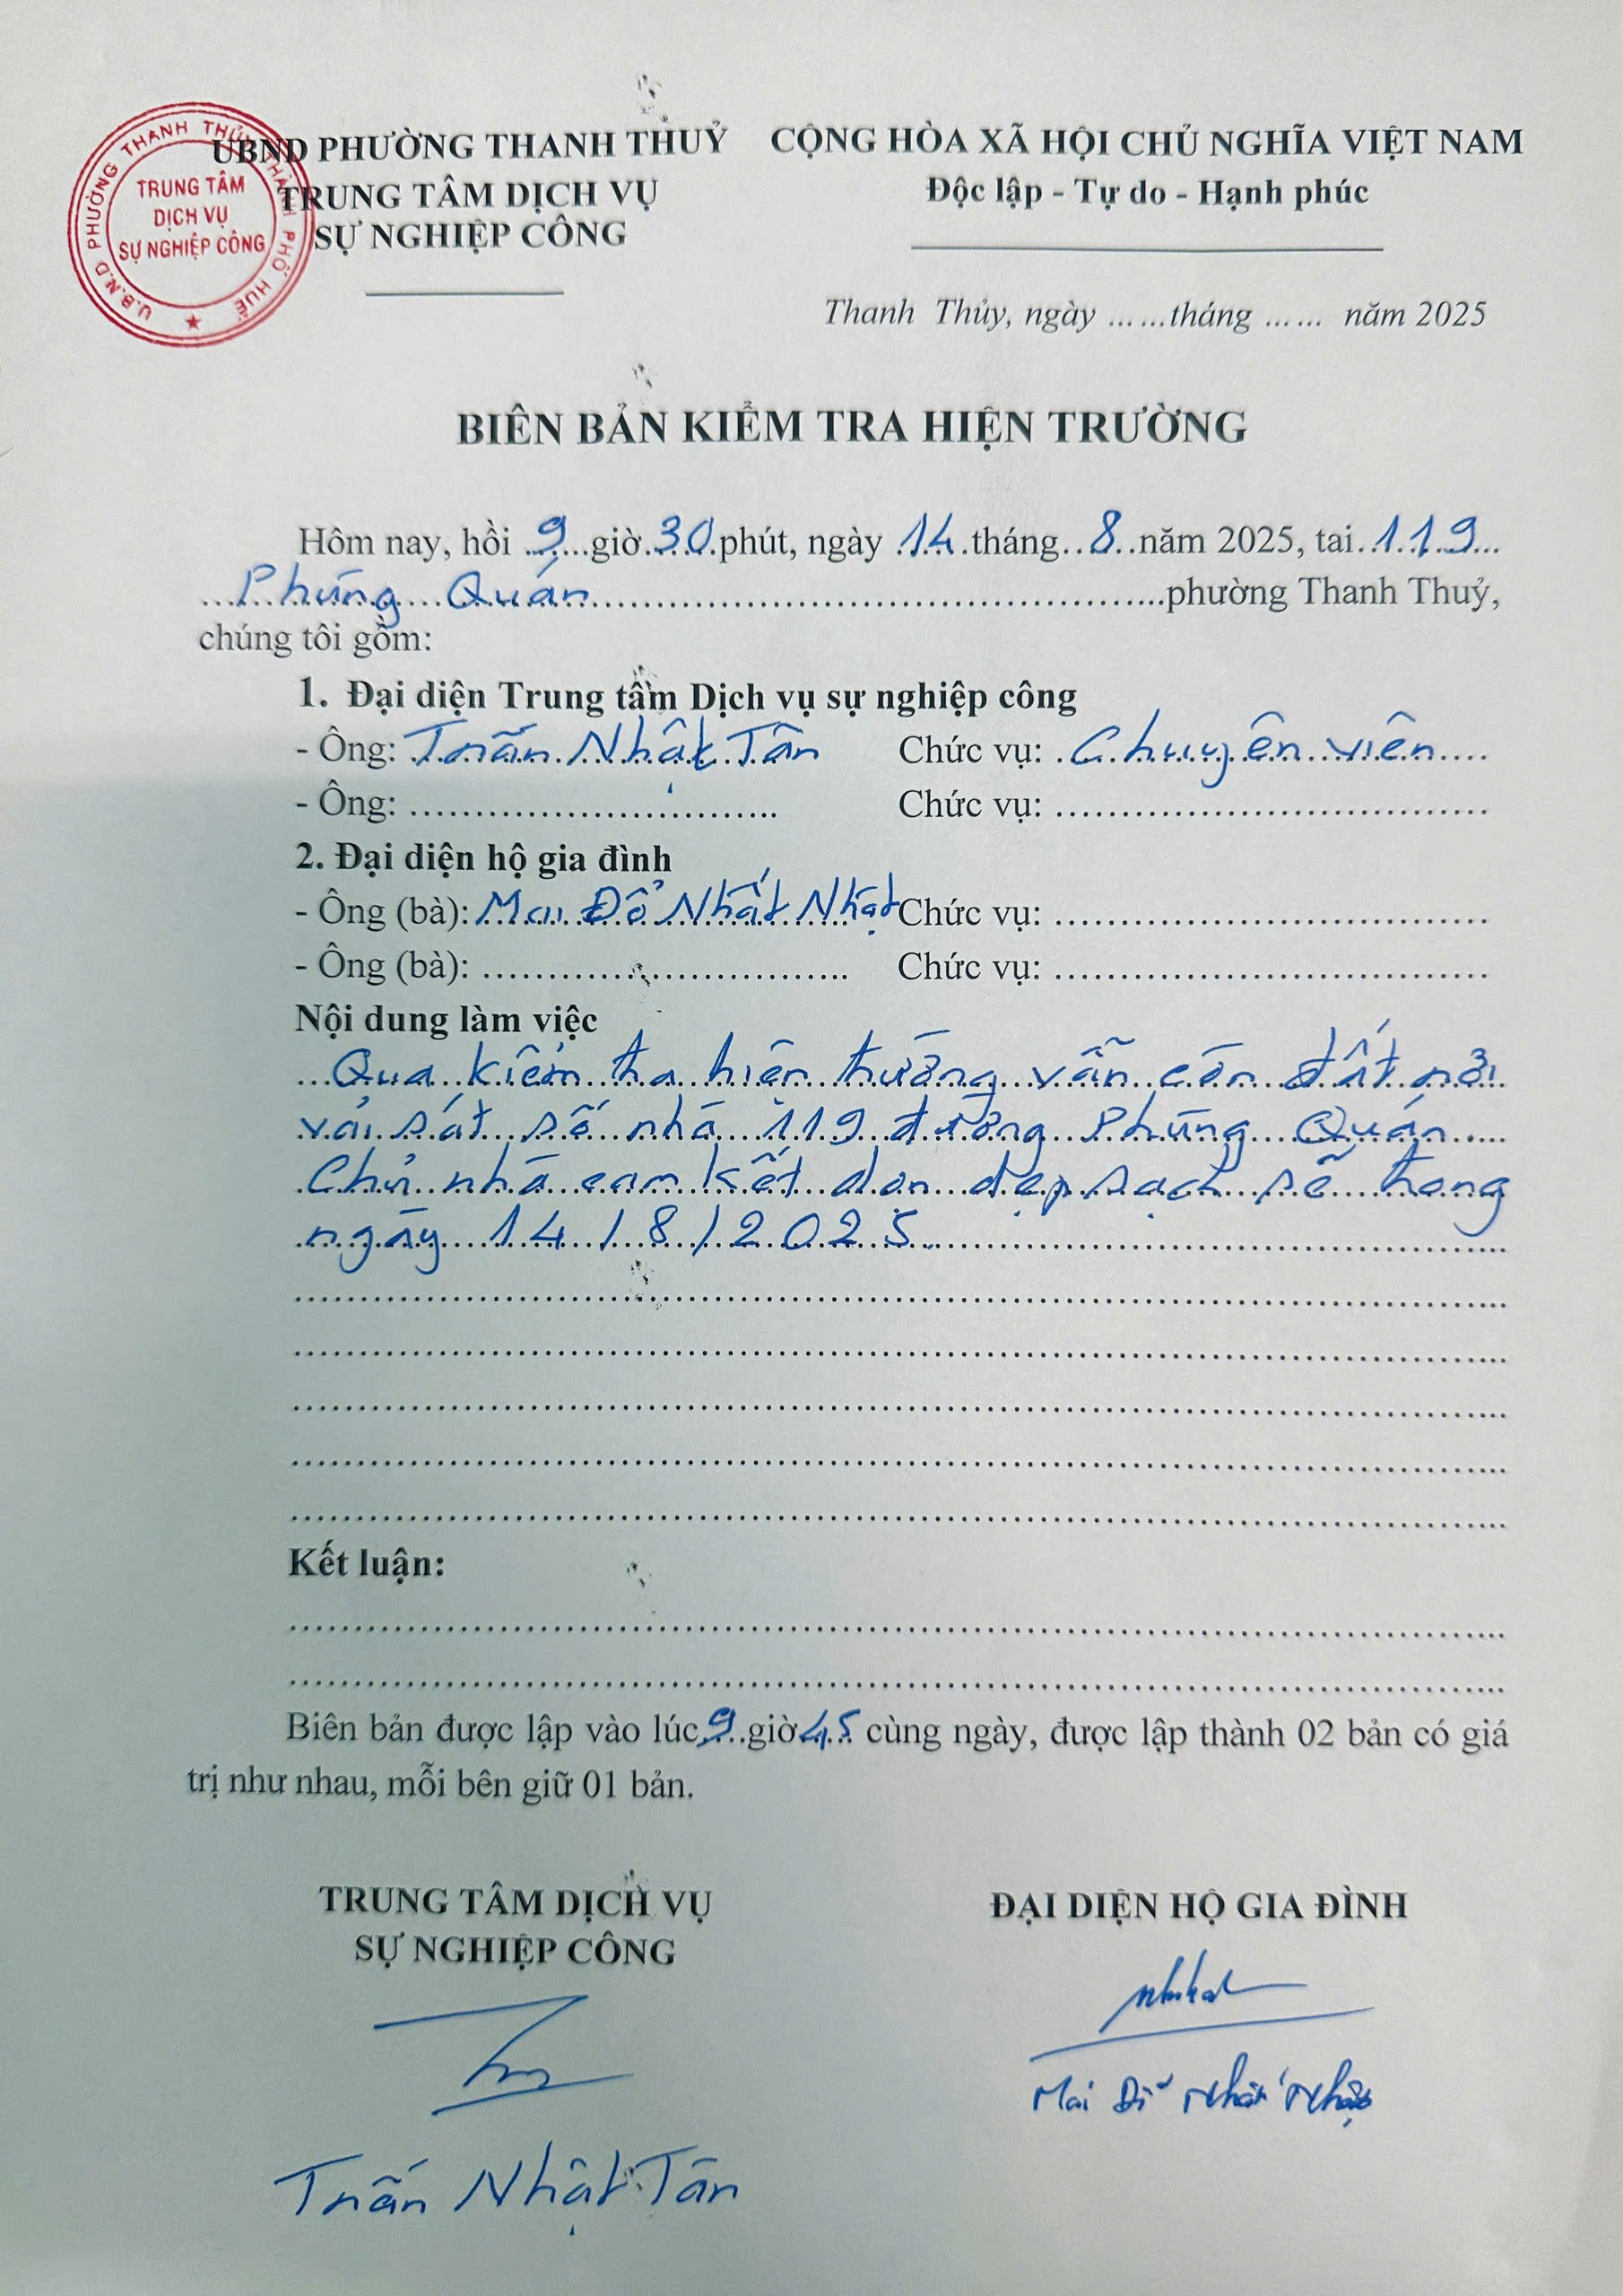 U.B.N.D PHƯỜNG THANH THỦY THÀNH PHỐ HUẾ
TRUNG TÂM
DỊCH VỤ
SỰ NGHIỆP CÔNG
UBND PHƯỜNG THANH THUỶ
TRUNG TÂM DỊCH VỤ
SỰ NGHIỆP CÔNG
CỘNG HÒA XÃ HỘI CHỦ NGHĨA VIỆT NAM
Độc lập - Tự do - Hạnh phúc
Thanh Thủy, ngày ......tháng ...... năm 2025
BIÊN BẢN KIỂM TRA HIỆN TRƯỜNG
Hôm nay, hồi 9 giờ 30 phút, ngày 14 tháng 8 năm 2025, tai 119
Phùng Quán phường Thanh Thuỷ,
chúng tôi gồm:
1. Đại diện Trung tâm Dịch vụ sự nghiệp công
- Ông: Trần Nhật Tân Chức vụ: Chuyên viên
- Ông: .............................. Chức vụ: ..............................
2. Đại diện hộ gia đình
- Ông (bà): Mai Đổ Nhất Nhật Chức vụ: ..............................
- Ông (bà): .............................. Chức vụ: ..............................
Nội dung làm việc
Qua kiểm tra hiện trường vẫn còn đất rơi
vải sát số nhà 119 đường Phùng Quán
Chủ nhà cam kết dọn dẹp sạch sẽ trong
ngày 14/8/2025
Kết luận:
Biên bản được lập vào lúc 9 giờ 45 cùng ngày, được lập thành 02 bản có giá
trị như nhau, mỗi bên giữ 01 bản.
TRUNG TÂM DỊCH VỤ
SỰ NGHIỆP CÔNG
ĐẠI DIỆN HỘ GIA ĐÌNH
Mai Đỗ Nhất Nhật
Trần Nhật Tân